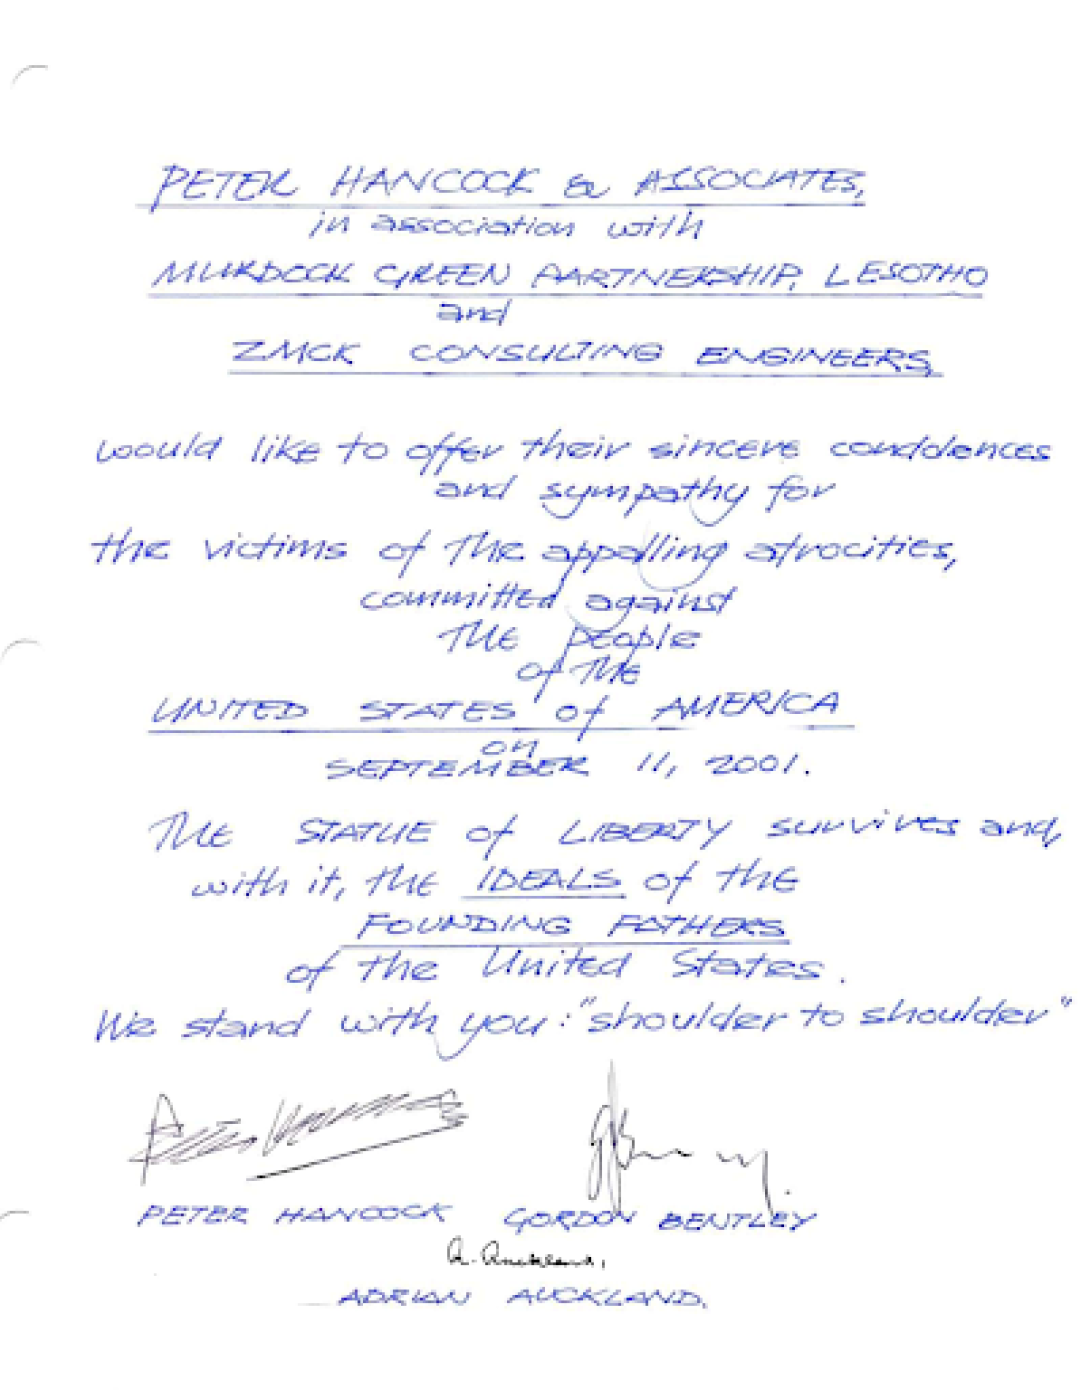 PETER HANCOCK & ASSOCIATES,
in association with
MURDOCK GREEN PARTNERSHIP, LESOTHO
and
ZMCK CONSULTING ENGINEERS,
would like to offer their sincere condolences
and sympathy for
the victims of the appalling atrocities,
committed against
THE people
of THE
UNITED STATES of AMERICA
on
SEPTEMBER 11, 2001.
THE STATUE of LIBERTY survives and,
with it, the IDEALS of the
FOUNDING FATHERS
of the United States.
We stand with you: "shoulder to shoulder"
PETER HANCOCK GORDON BENTLEY
A. Auckland.
ADRIAN AUCKLAND.